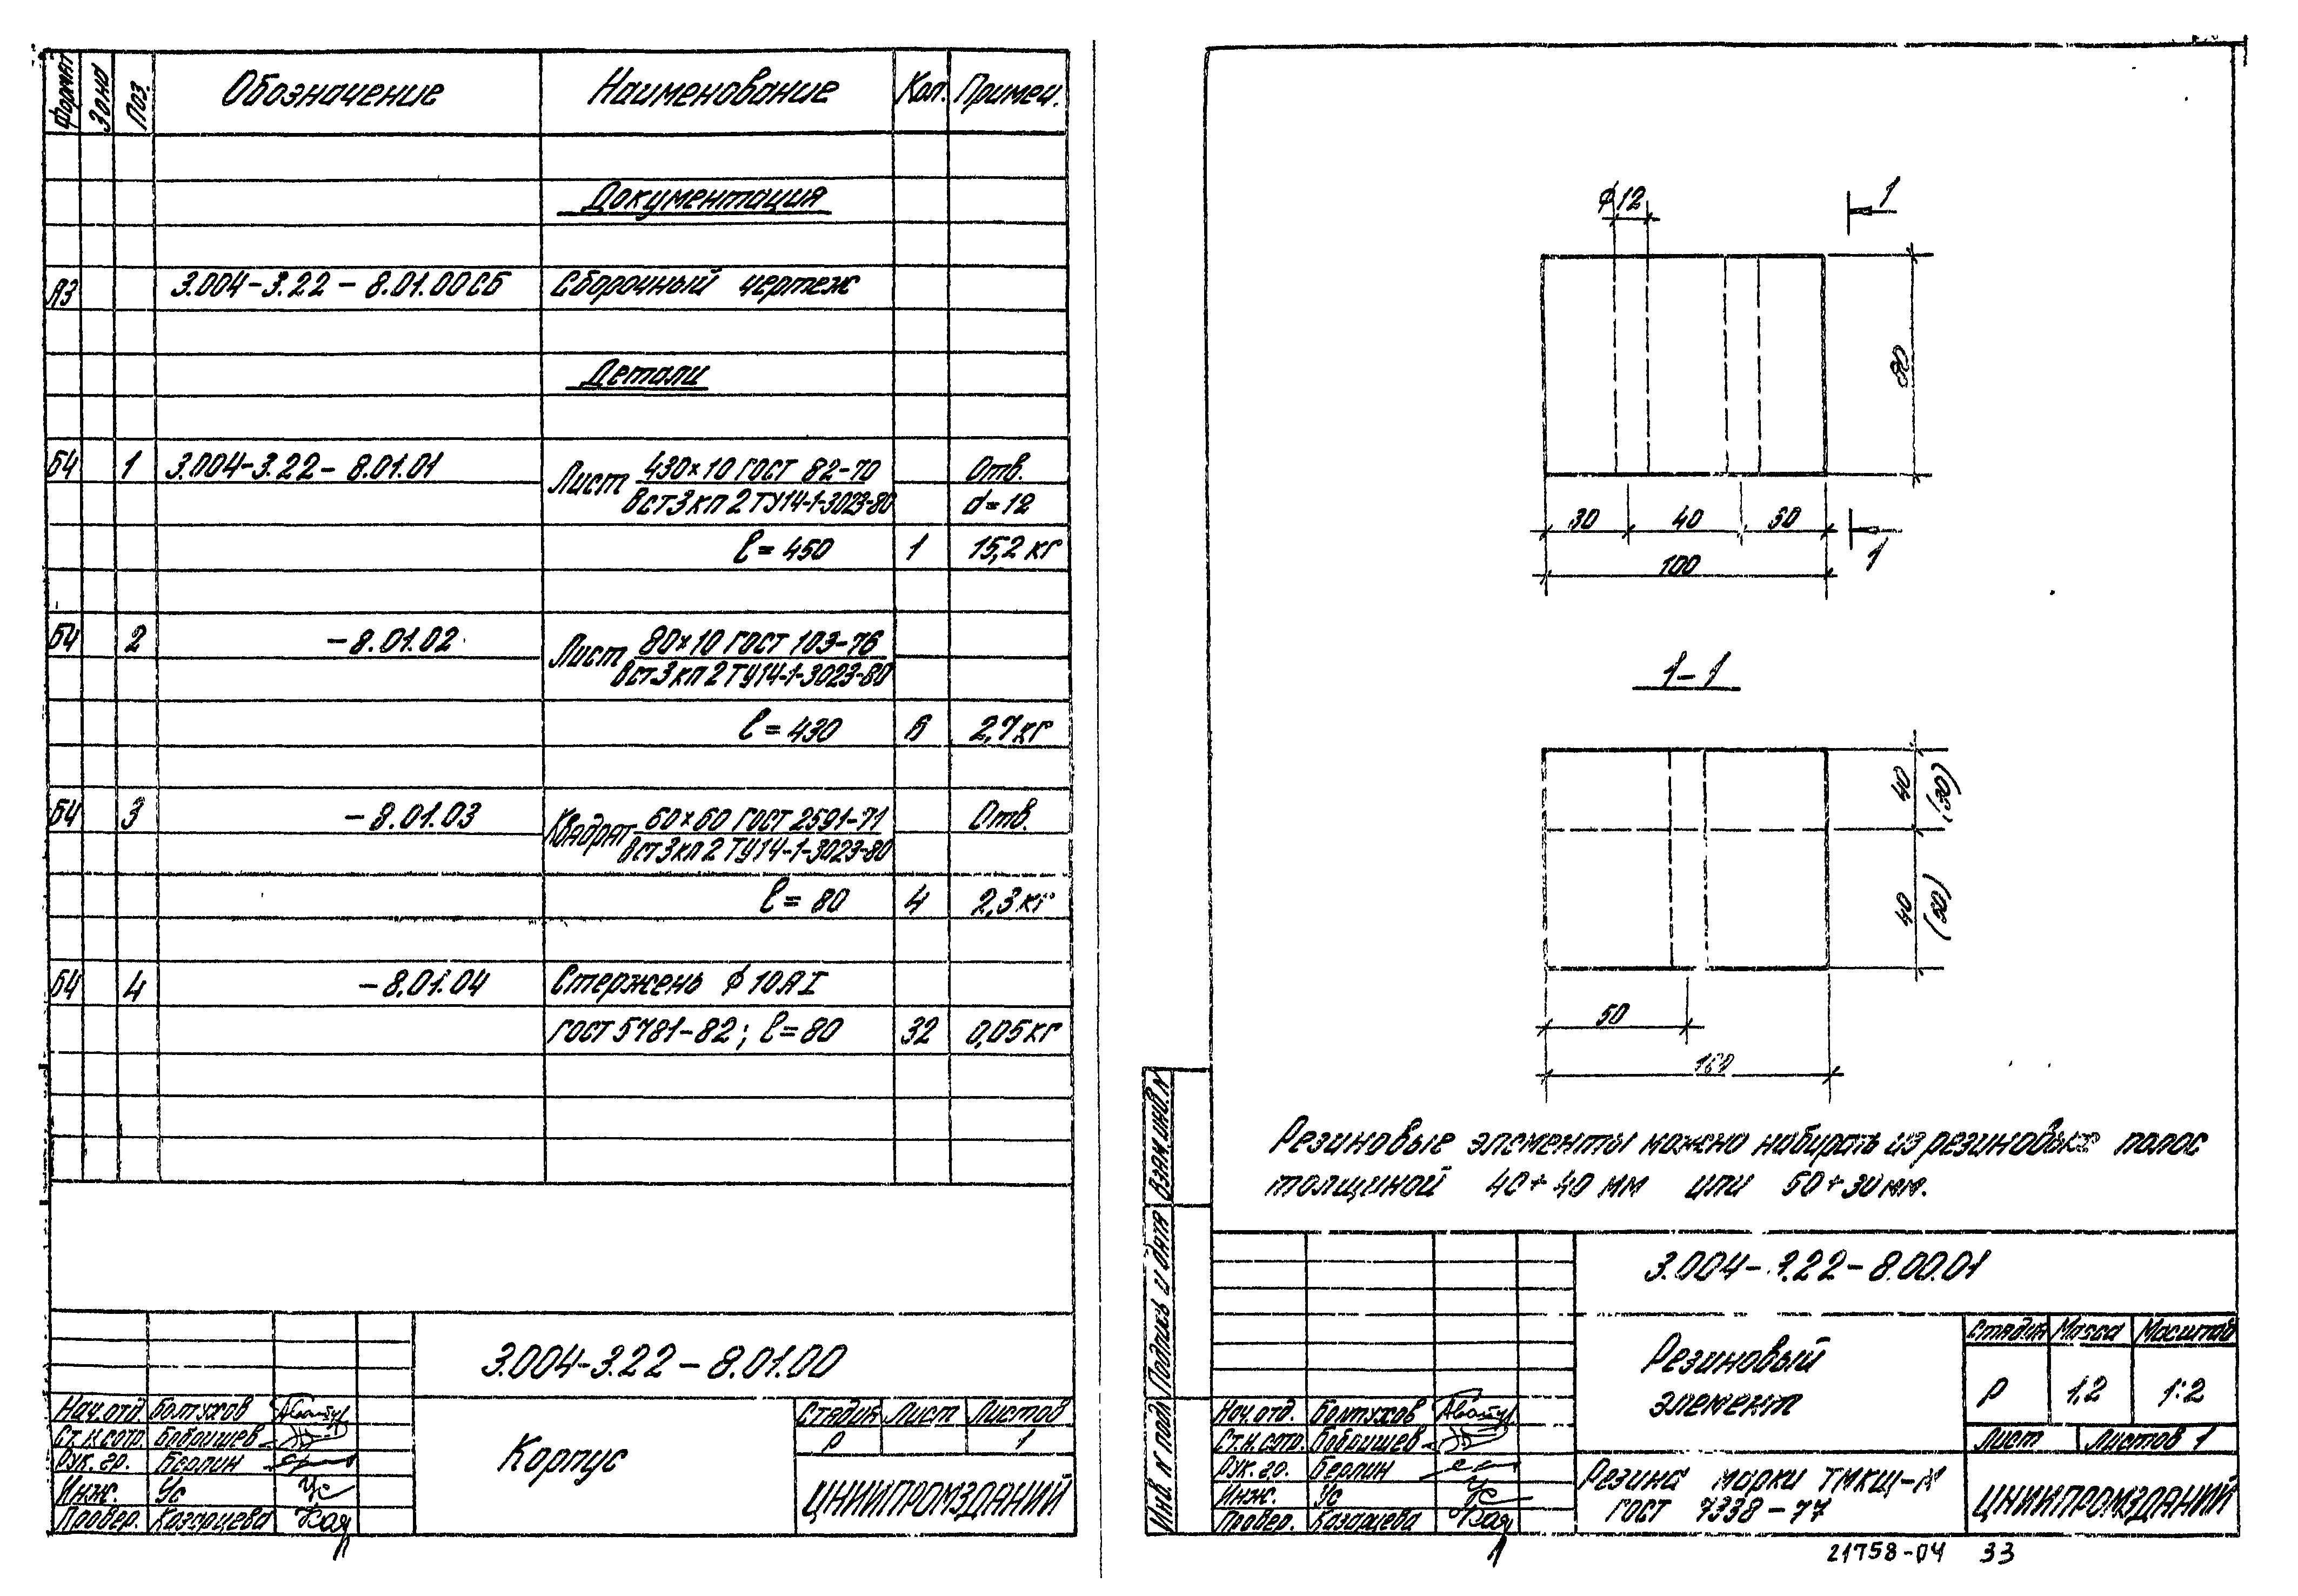 Формат Зона Поз. Обозначение Наименование Кол. Примеч.
Документация
А3 3.004-3.22-8.01.00СБ Сборочный чертеж
Детали
Б4 1 3.004-3.22-8.01.01 Лист 430×10 ГОСТ 82-70 Отв.
ВСт3кп2 ТУ14-1-3023-80 d=12
ℓ=450 1 15,2 кг
Б4 2 -8.01.02 Лист 80×10 ГОСТ 103-76
ВСт3кп2 ТУ14-1-3023-80
ℓ=430 6 2,7 кг
Б4 3 -8.01.03 Квадрат 60×60 ГОСТ 2591-71 Отв.
ВСт3кп2 ТУ14-1-3023-80
ℓ=80 4 2,3 кг
Б4 4 -8.01.04 Стержень ф 10АI
ГОСТ 5781-82; ℓ=80 32 0,05 кг
3.004-3.22-8.01.00
Нач.отд. Болтухов
Ст.н.сотр. Бобришев
Рук. гр. Берлин
Инж. Ус
Провер. Казарцева
Корпус
Стадия Лист Листов
Р 1
ЦНИИПРОМЗДАНИЙ
ф12
1
80
30 40 30
1
100
1-1
40
40
50
100
Резиновые элементы можно набирать из резиновых полос
толщиной 40+40 мм или 50+30 мм.
Взам.инв.N
Подпись и дата
Инв. N подл.
3.004-3.22-8.00.01
Нач.отд. Болтухов
Ст.н.сотр. Бобришев
Рук. гр. Берлин
Инж. Ус
Провер. Казарцева
Резиновый
элемент
Стадия Масса Масштаб
Р 1,2 1:2
Лист Листов 1
Резина марки ТМКЩ-М
ГОСТ 7338-77
ЦНИИПРОМЗДАНИЙ
21758-04 33